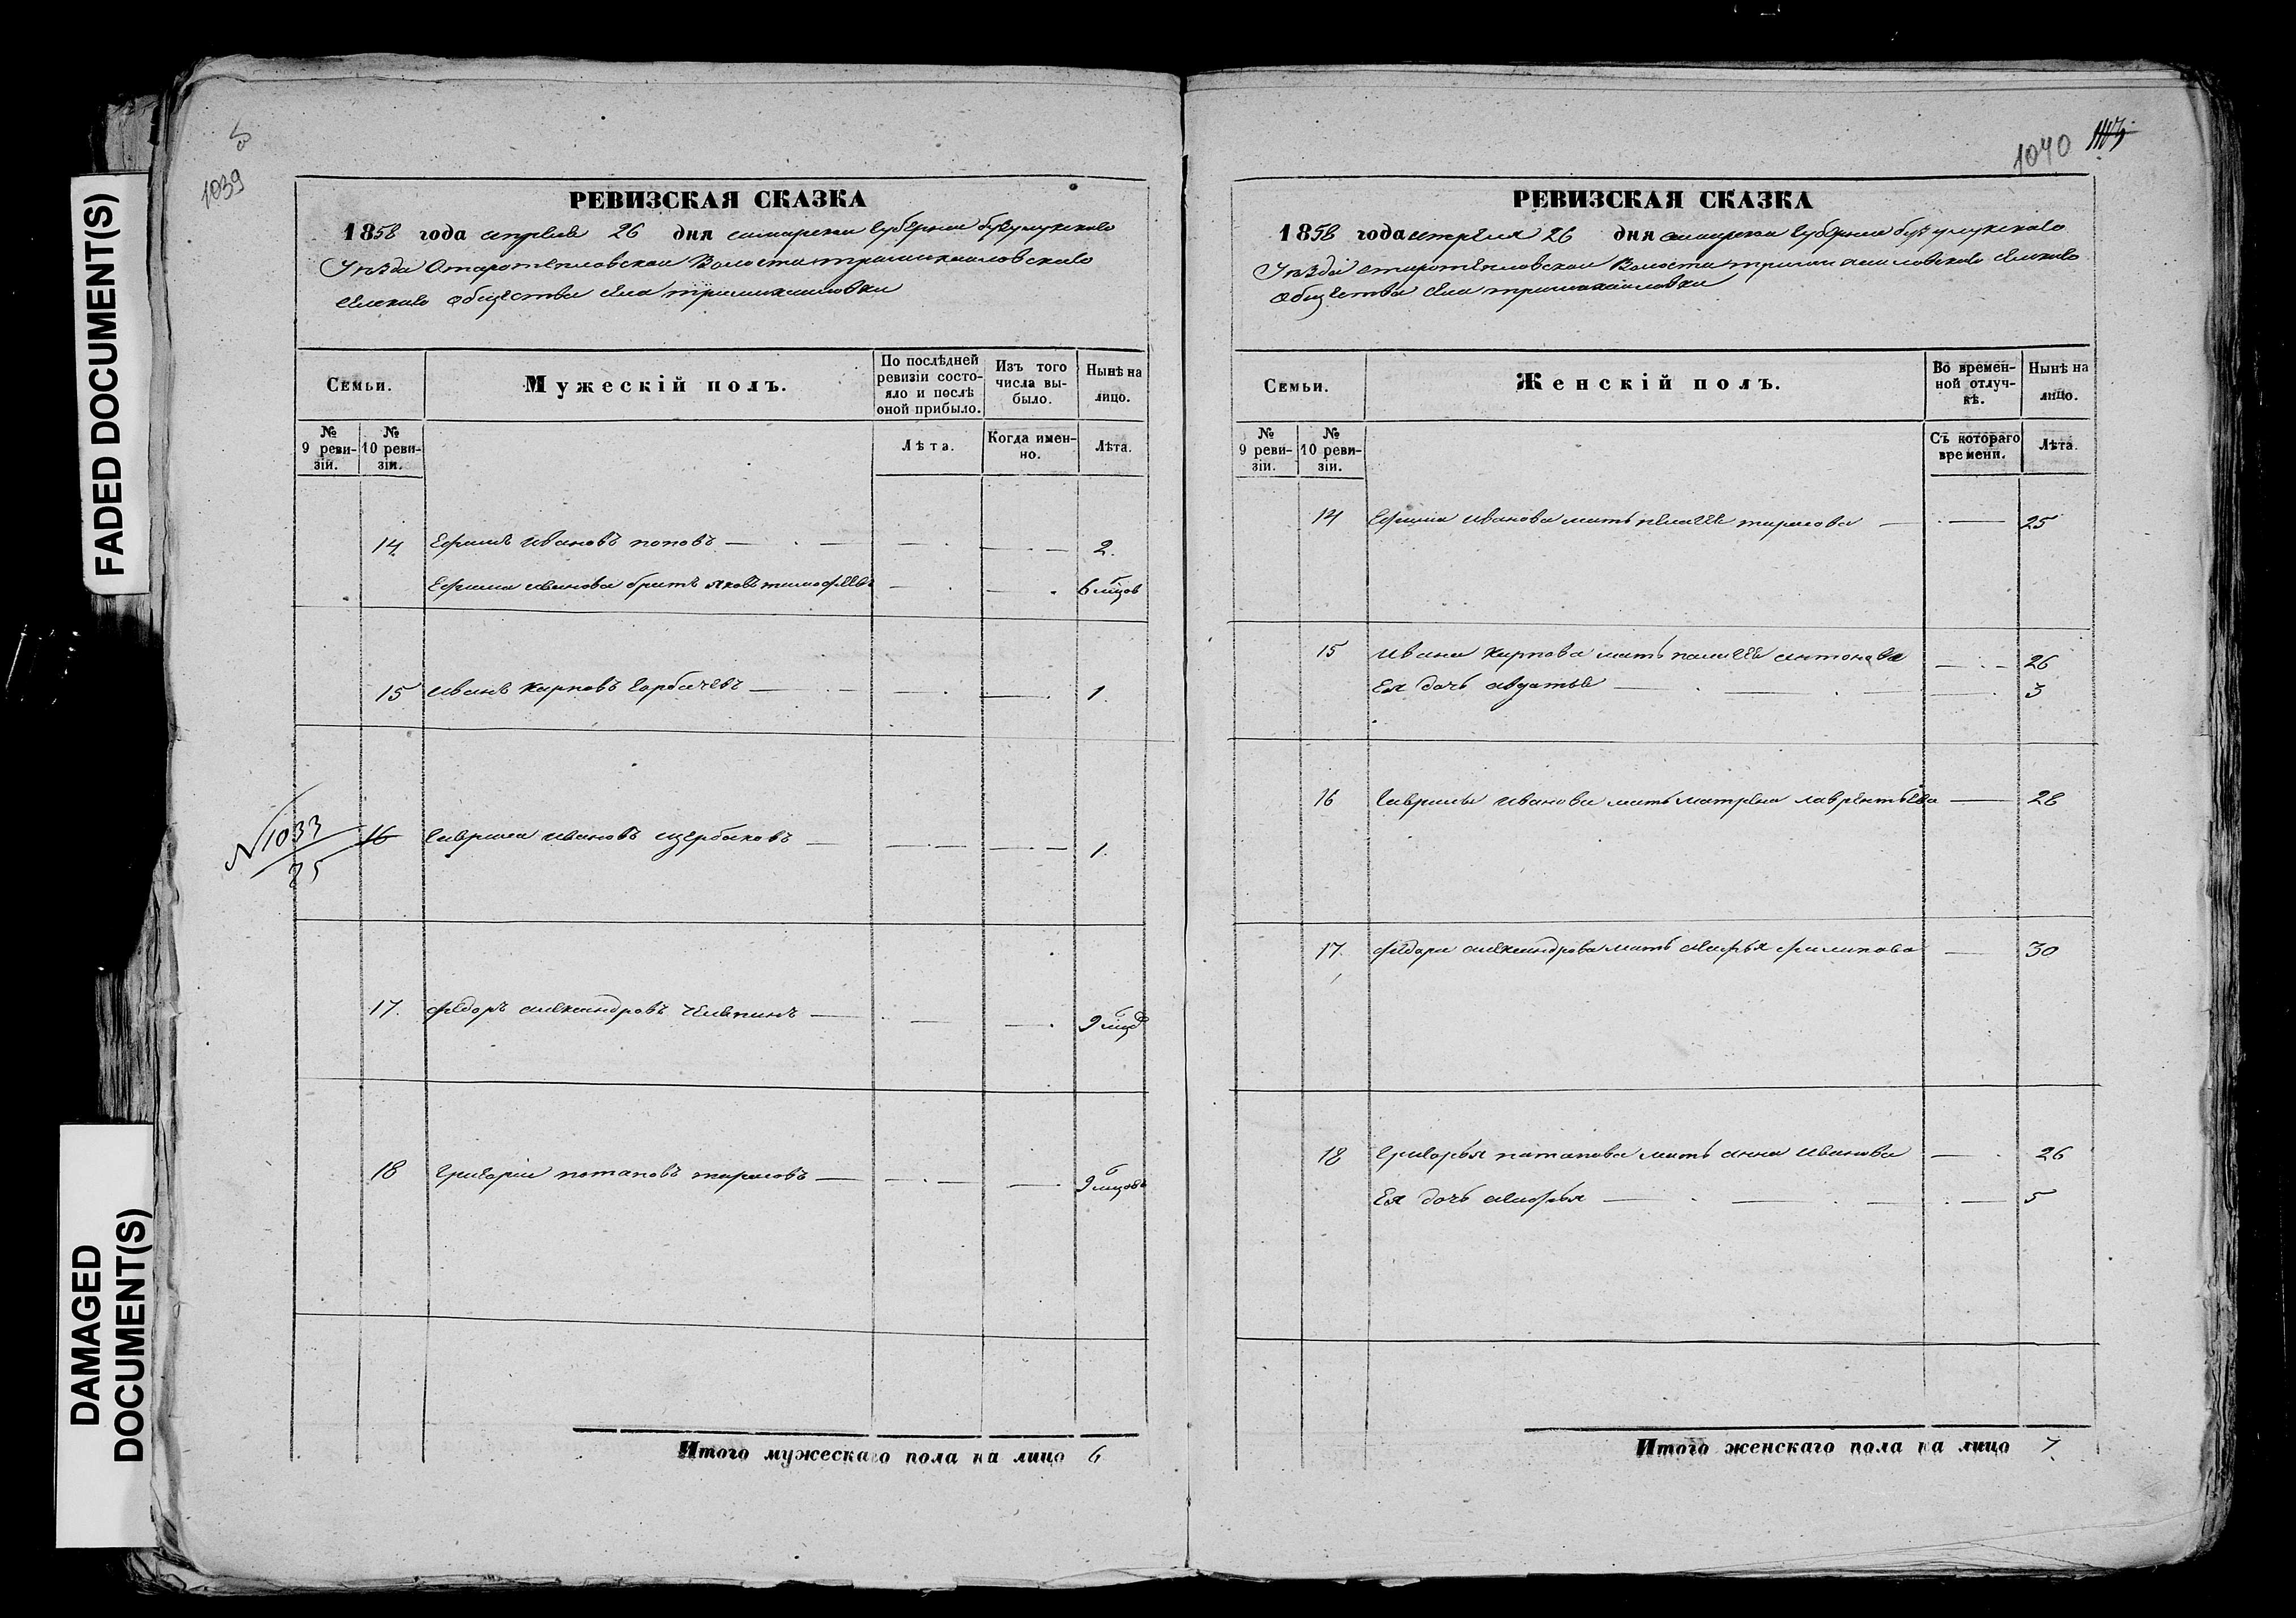 FADED DOCUMENT(S)
DAMAGED
DOCUMENT(S)
1039
РЕВИЗСКАЯ СКАЗКА
1858 года апреля 26 дня самарской губернии бузулукскаго
Уѣзда Старотепловской Волости
сельскаго общества села
Семьи.
Мужескій полъ.
По послѣдней ревизіи состояло и послѣ оной прибыло.
Изъ того числа выбыло.
Нынѣ на лицо.
№ 9 ревизіи.
№ 10 ревизіи.
Лѣта.
Когда именно.
Лѣта.
14 Ефимъ Ивановъ поповъ 2.
Ефима иванова братъ яковъ тимофеевъ 6 мцовъ
15 иванъ карповъ горбачевъ 1.
№ 1033
25
16 гаврила ивановъ щербаковъ 1.
17. федоръ александровъ 9 мцов
18 григорій потаповъ тарасовъ 9 мцовъ
Итого мужескаго пола на лицо 6
1040
РЕВИЗСКАЯ СКАЗКА
1858 года апреля 26 дня самарской губернии бузулукскаго
Уѣзда старотепловской Волости сельскаго
общества села
Семьи.
Женскій полъ.
Во временной отлучкѣ.
Нынѣ на лицо.
№ 9 ревизіи.
№ 10 ревизіи.
Съ котораго времени.
Лѣта.
14 Ефима иванова мать пелагея тарасова 25
15 ивана карпова мать пелагея антонова 26
Ея дочь авдотья 3
16 гаврилы иванова мать матрена лаврентьева 28
17. федора александрова мать марья филипова 30
18 григорья патапова мать анна иванова 26
Ея дочь марья 5
Итого женскаго пола на лицо 7.